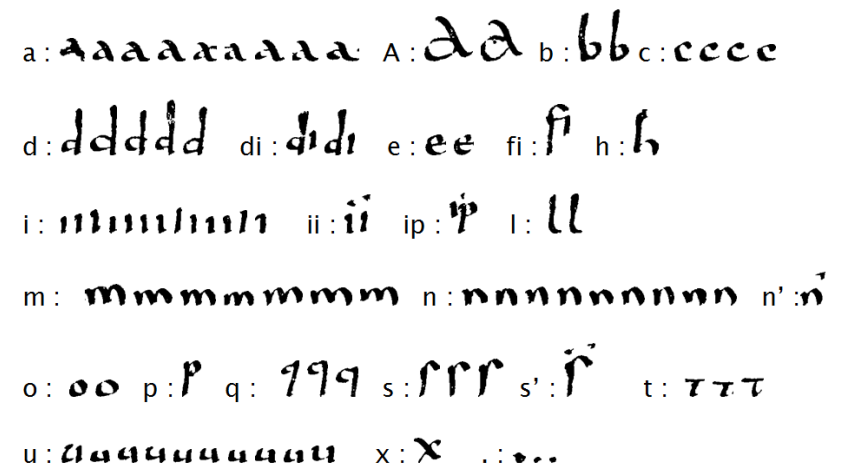 a : aaaaaaaaa A : AA b : bb c : cccc
d : ddddd di : didi e : ee fi : fi h : h
i : iiiiiiiiiiii ii : ii ip : ip l : ll
m : mmmmmmm n : nnnnnnnnn n' : n'
o : oo p : p q : qqq s : sss s' : s' t : ttt
u : uuuuuuuuuu x : x . : ...